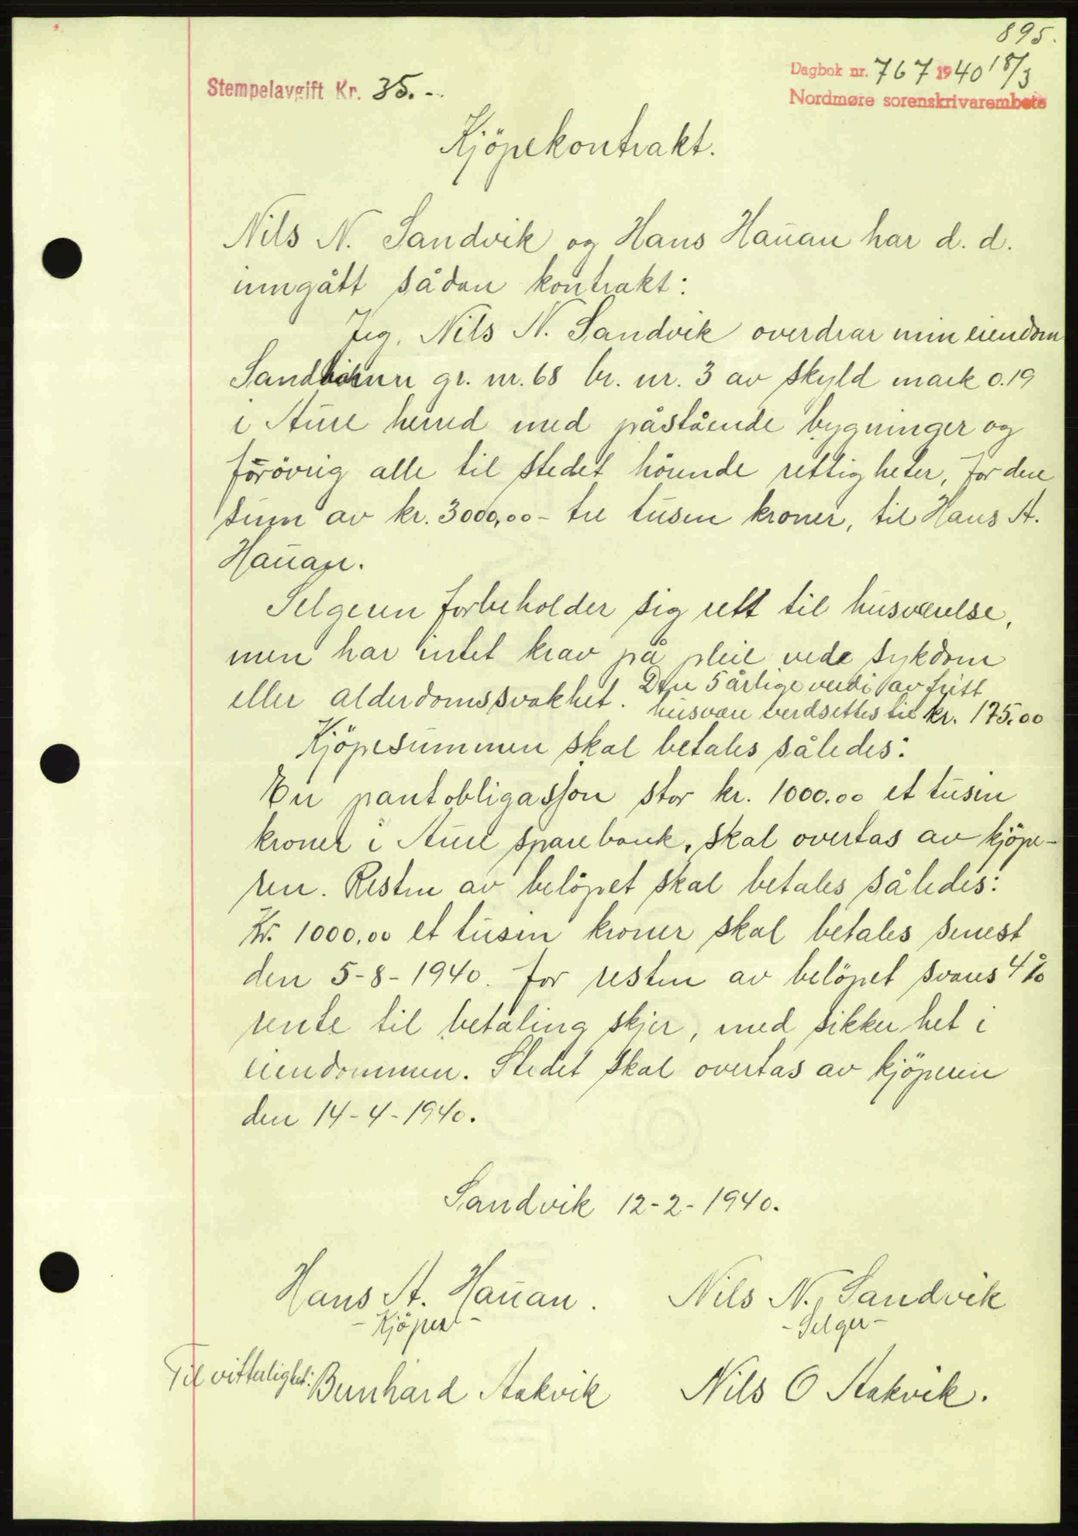 895.
Stempelavgift Kr. 35.-
Dagbok nr. 767 1940 18/3
Nordmøre sorenskrivarembete
Kjöpekontrakt.
Nils N. Sandvik og Hans Hauan har d. d.
inngått sådan kontrakt:
Jeg, Nils N. Sandvik overdrar min eiendom
gr. nr. 68 br. nr. 3 av skyld mark 0.19
i Aure herred med påstående bygninger og
forövrig alle til stedet hörende rettigheter, for den
sum av kr. 3000,00 - tre tusen kroner, til Hans A.
Hauan.
Selgeren forbeholder sig rett til husværelse,
men har intet krav på pleie ved sykdom
eller alderdomssvakhet. Den 5 årlige verdi av fritt
husvære verdsettes til kr. 175,00
Kjöpesummen skal betales således:
En pantobligasjon stor kr. 1000.00 et tusen
kroner i Aure sparebank, skal overtas av kjöpe-
ren. Resten av belöpet skal betales således:
Kr. 1000,00 et tusen kroner skal betales senest
den 5-8-1940. for resten av belöpet svares 4%
rente til betaling skjer, med sikkerhet i
eiendommen. Stedet skal overtas av kjöperen
den 14-4-1940.
Sandvik 12-2-1940.
Hans A. Hauan. Nils N. Sandvik
- Kjöper - - Selger -
Til vitterlighet: Bernhard Aakvik Nils O Aakvik.